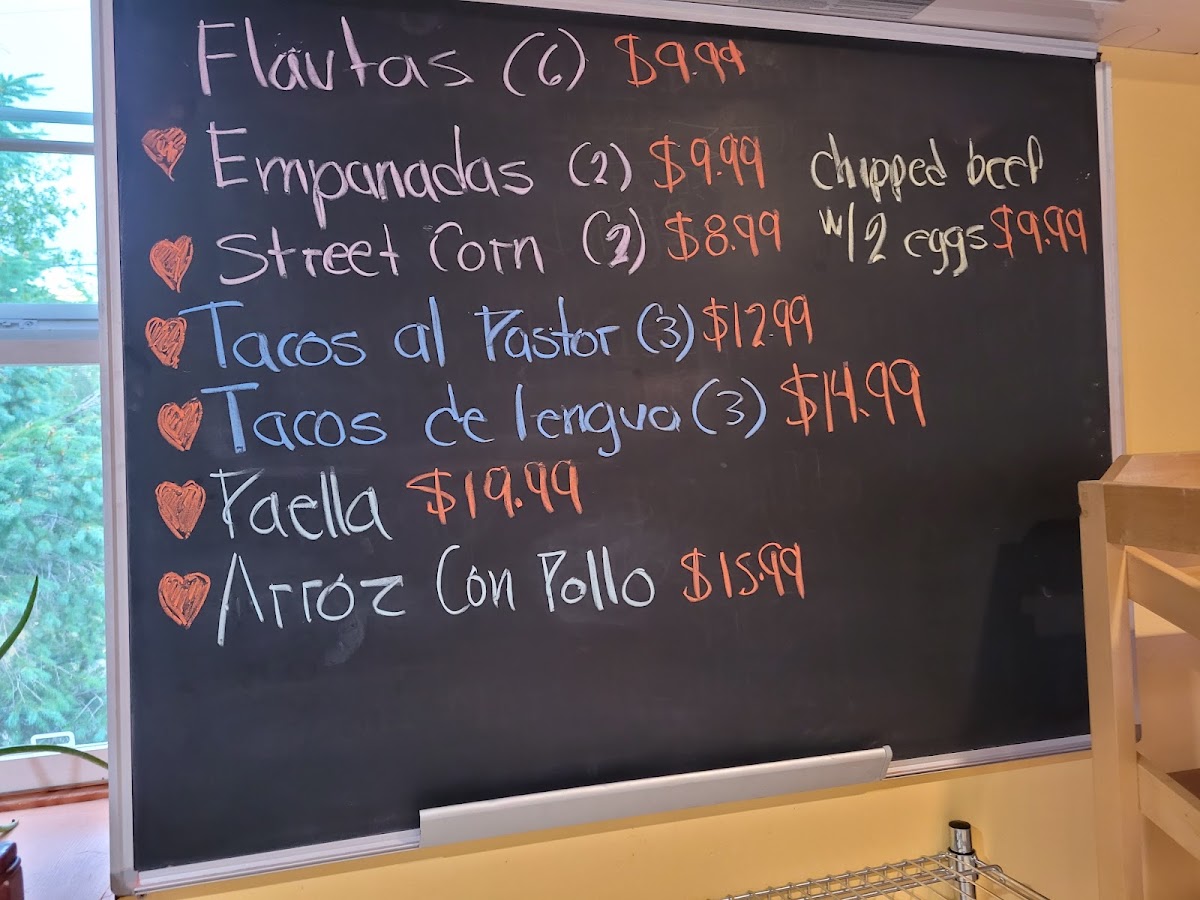 Flautas (6) $9.99
Empanadas (2) $9.99
Street Corn (2) $8.99
Tacos al Pastor (3) $12.99
Tacos de lengua (3) $14.99
Paella $19.99
Arroz Con Pollo $15.99
chipped beef
w/2 eggs $9.99